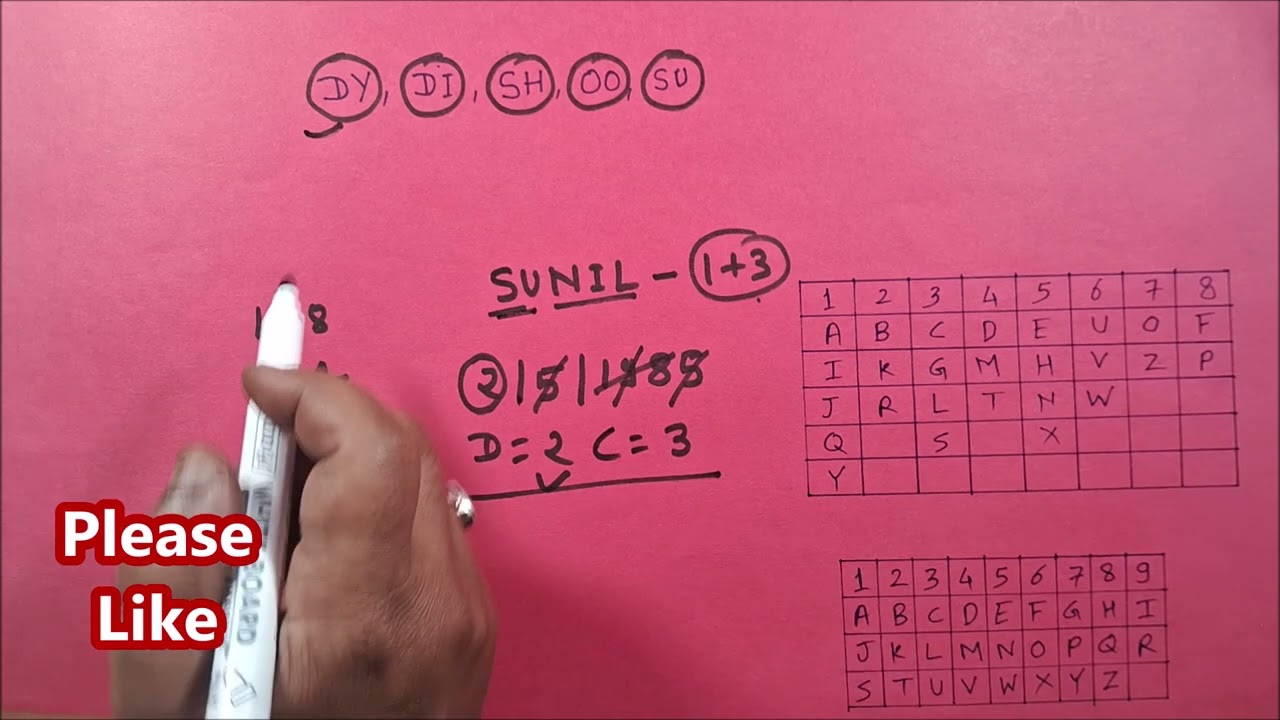 DY, DI, SH, OO, SU
SUNIL - 1+3
8
D=2 C=3
1 2 3 4 5 6 7 8
A B C D E U O F
I K G M H V Z P
J R L T N W
Q S X
Y
1 2 3 4 5 6 7 8 9
A B C D E F G H I
J K L M N O P Q R
S T U V W X Y Z
Please
Like